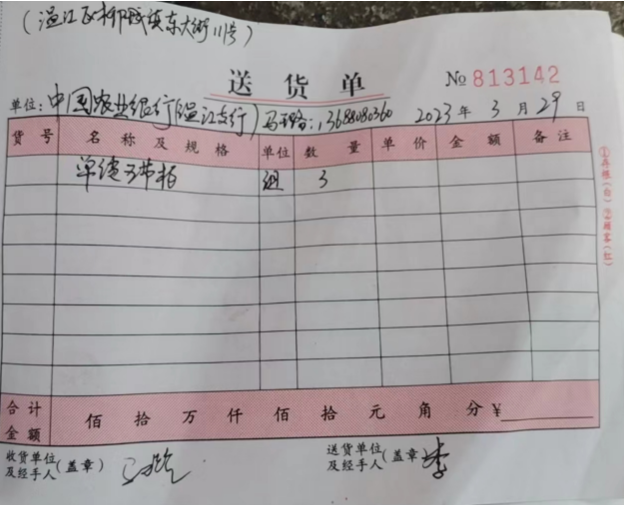 (温江区柳城镇东大街111号)
送货单 № 813142
单位:中国农业银行(温江支行) 马璐:13688080360 2023年3月29日
货号 名称及规格 单位 数量 单价 金额 备注
组 3
①存根(白) ②顾客(红)
合计金额 佰拾万仟佰拾元角分¥
收货单位及经手人(盖章)
送货单位及经手人(盖章) 李